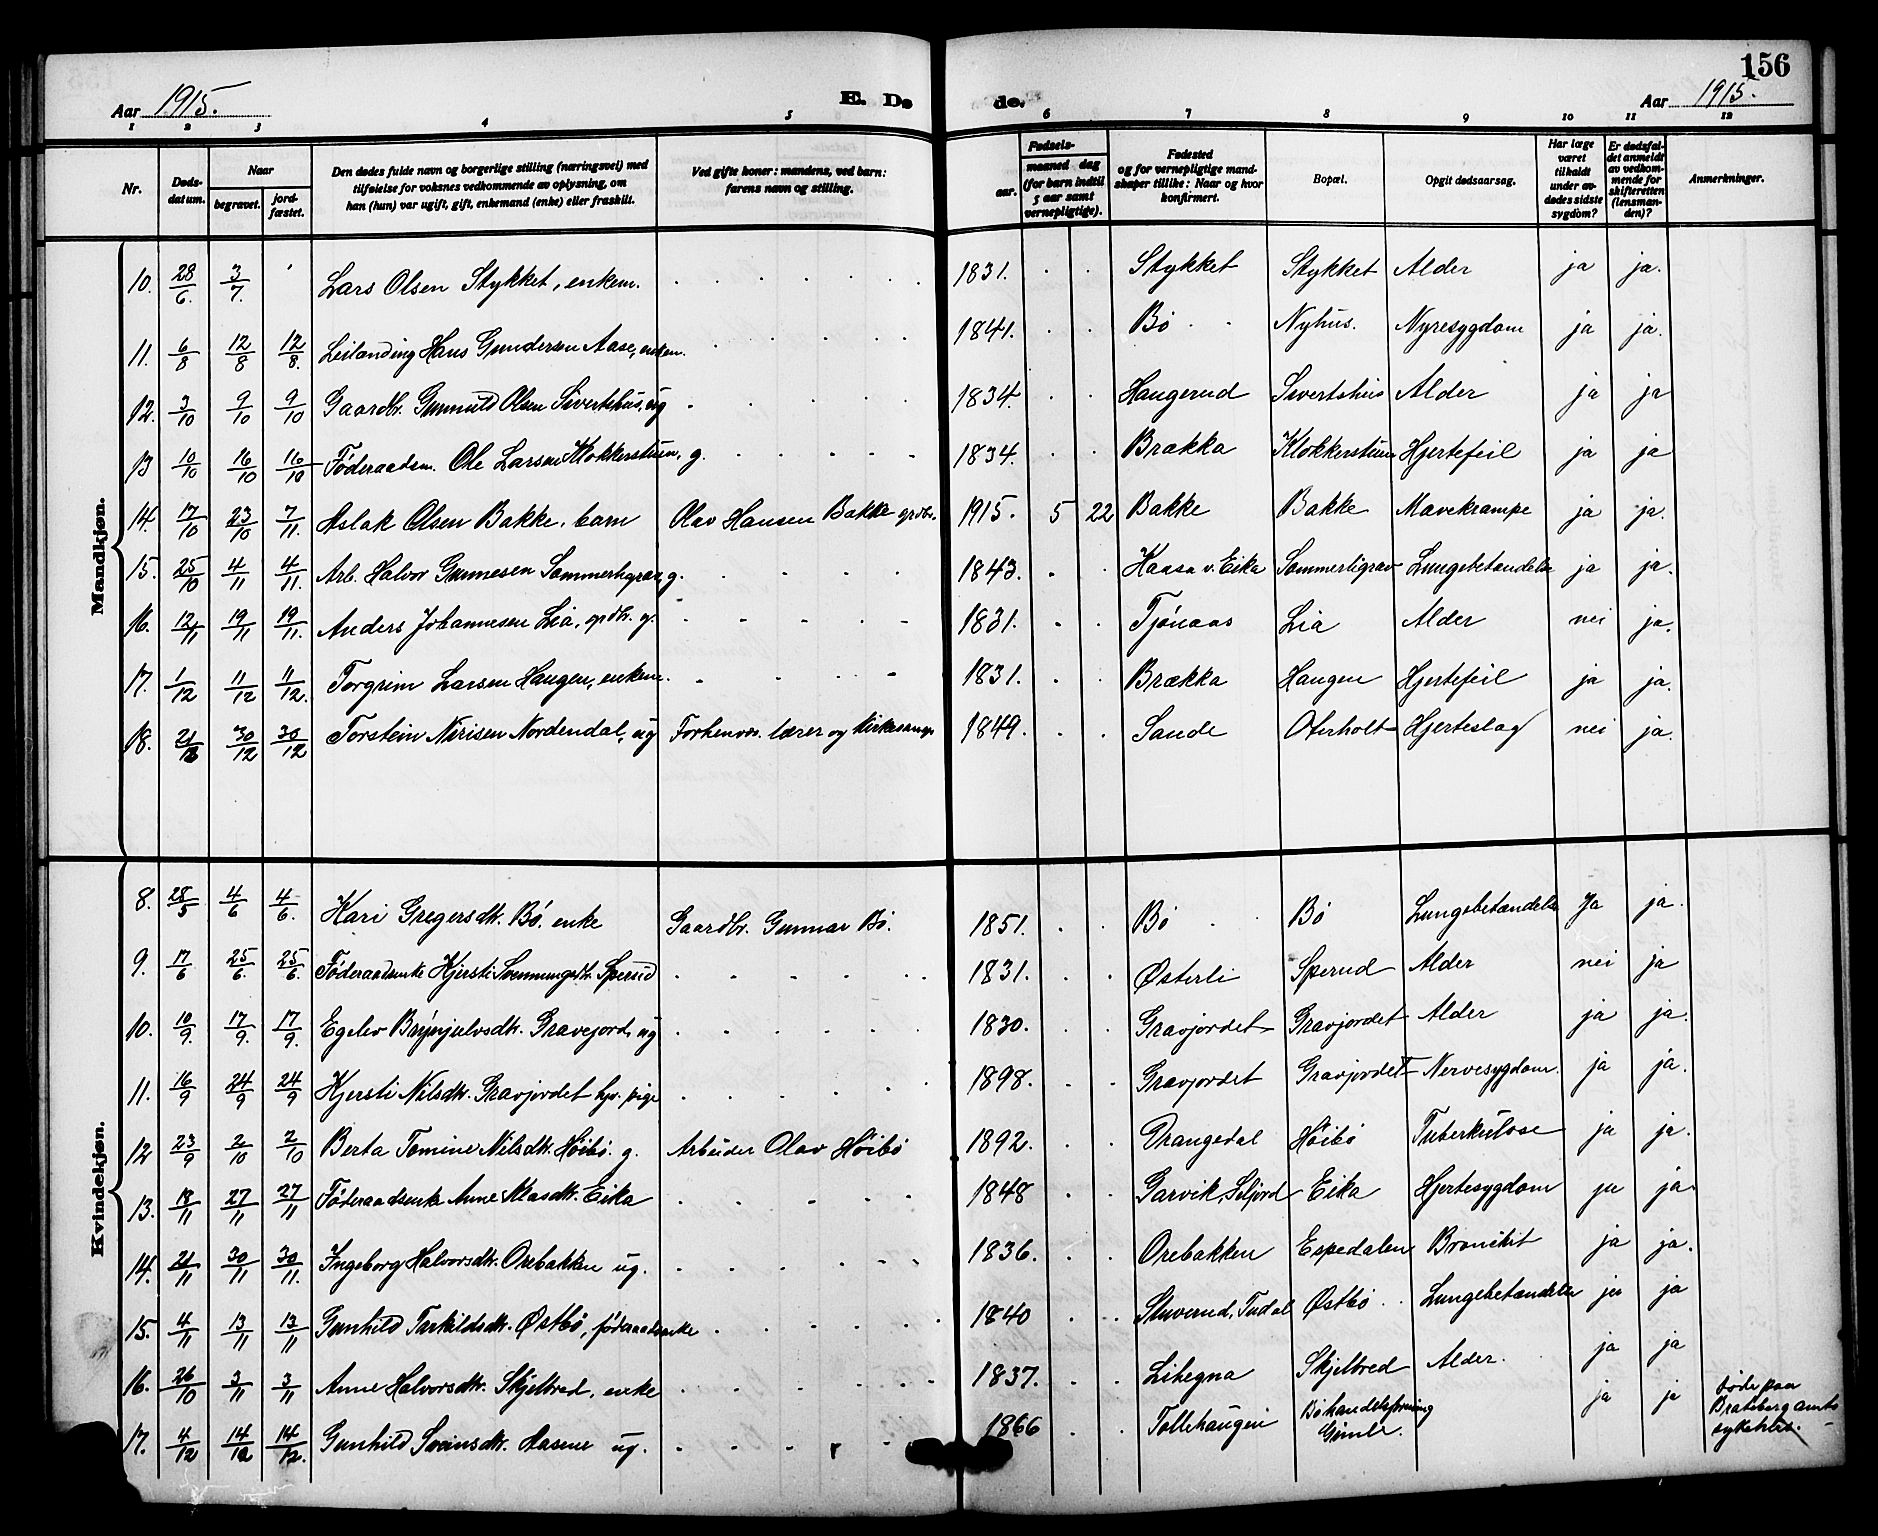 156
Aar 1915. E. Dø de. Aar 1915.
1 2 3 4 5 6 7 8 9 10 11 12
Nr. | Døds-datum. | Naar begravet. | jord-fæstet. | Den dødes fulde navn og borgerlige stilling (næringsvei) med tilføielse for voksnes vedkommende av oplysning, om han (hun) var ugift, gift, enkemand (enke) eller fraskilt. | Ved gifte koner: mandens, ved barn: farens navn og stilling. | Fødsels- aar. | maaned dag (for barn indtil 5 aar samt vernepligtige). | Fødested og for vernepligtige mandskaper tillike: Naar og hvor konfirmert. | Bopæl. | Opgit dødsaarsag. | Har læge været tilkaldt under avdødes sidste sygdom? | Er dødsfaldet anmeldt av vedkommende for skifteretten (lensmanden)? | Anmerkninger.
Mandkjøn.
10. 28/6. 3/7. Lars Olsen Stykket, enkem. 1831. Stykket Stykket Alder ja ja.
11. 6/8 12/8 12/8. Leilending Hans Gundersen Aase, enkem. 1841. Bø Nyhus. Nyresygdom ja ja.
12. 3/10 9/10 9/10 Gaardbr. Gunnuld Olsen Sivertshus, ug 1834. Haugerud Sivertshus Alder ja ja
13 10/10 16/10 16/10 Føderaadsm. Ole Larsen Klokkerstuen, g. 1834. Brækka Klokkerstuen Hjertefeil ja ja
14. 17/10 23/10 7/11. Aslak Olsen Bakke, barn Olav Hansen Bakke grdbr. 1915. 5 22 Bakke Bakke Mavekrampe ja ja.
15. 25/10 4/11 4/11. Arb. Halvor Gunnesen Sommerligrav, g. 1843. Haasa v. Eika Sommerligrav Lungebetændelse ja ja.
16. 12/11 19/11 19/11. Anders Johannesen Lia, grdbr. g. 1831. Tjønaas Lia Alder nei ja.
17. 1/12 11/12 11/12. Torgrim Larsen Haugen, enkem. 1831. Brækka Haugen Hjertefeil ja ja.
18. 21/12 30/12 30/12 Torstein Nirisen Nordendal, ug Forhenvær. lærer og kirkesanger 1849. Sande Oterholt Hjerteslag nei ja.
Kvindekjøn.
8. 28/5 4/6 4/6. Kari Gregersdtr. Bø. enke Gaardbr. Gunnar Bø. 1851. Bø Bø Lungebetændelse Ja ja.
9. 17/6 25/6. 25/6. Føderaadsenke Kjersti Svennungsdtr. Sperud 1831. Østerli Sperud Alder nei ja
10. 10/9. 17/9. 17/9. Egelev Brynjulvsdtr. Gravejord, ug 1830. Gravjordet Gravjordet Alder ja ja.
11. 16/9 24/9 24/9 Kjersti Nilsdtr. Gravjordet hjv. pige 1898. Gravjordet Gravjordet Nervesygdom. ja ja.
12 23/9 2/10 2/10 Berta Tomine Nilsdtr. Høibø. g. Arbeider Olav Høibø 1892. Drangedal Høibø Tuberkulose ja ja.
13. 18/11 27/11 27/11 Føderaadsenke Anne Klasdtr. Eika 1848 Garvik, Seljord Eika Hjertesygdom ja ja.
14. 21/11 30/11 30/11. Ingeborg Halvorsdtr. Orebakken ug. 1836. Orebakken Espedalen Bronikit ja ja.
15. 4/11 13/11 13/11 Gunhild Tarkildsdtr. Østbø, føderaadsenke 1840 Stuverud, Tudal Østbø Lungebetændelse ja ja
16. 26/10 3/11 3/11 Anne Halvorsdtr. Skjelbred, enke 1837. Lihegna Skjelbred Alder. ja ja
17. 4/12 14/12 14/12. Gunhild Sveinsdtr. Hasene ug. 1866 Tollehaugen Bø handelsforening Gimle. ja ja døde paa Bratsberg amts sykehus.